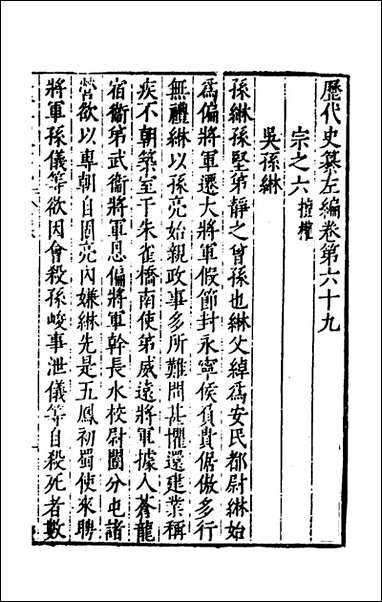 歷代史纂左編卷第六十九
宗之六擅權
吳孫綝
孫綝孫堅弟靜之曾孫也綝父綽爲安民都尉綝始
爲偏將軍遷大將軍假節封永寧侯負貴倨傲多行
無禮綝以孫亮始親政事多所難問甚懼還建業稱
疾不朝築室于朱雀橋南使第威遠將軍據入蒼龍
宿衞第武衞將軍恩偏將軍幹長水校尉闓分屯諸
營欲以專朝自固亮內嫌綝先是五鳳初蜀使來聘
將軍孫儀等欲因會殺孫峻事泄儀等自殺死者數